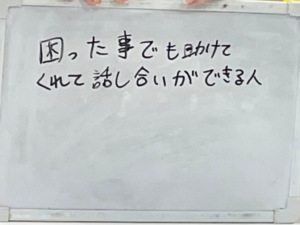 困った事でも助けて
くれて話し合いができる人